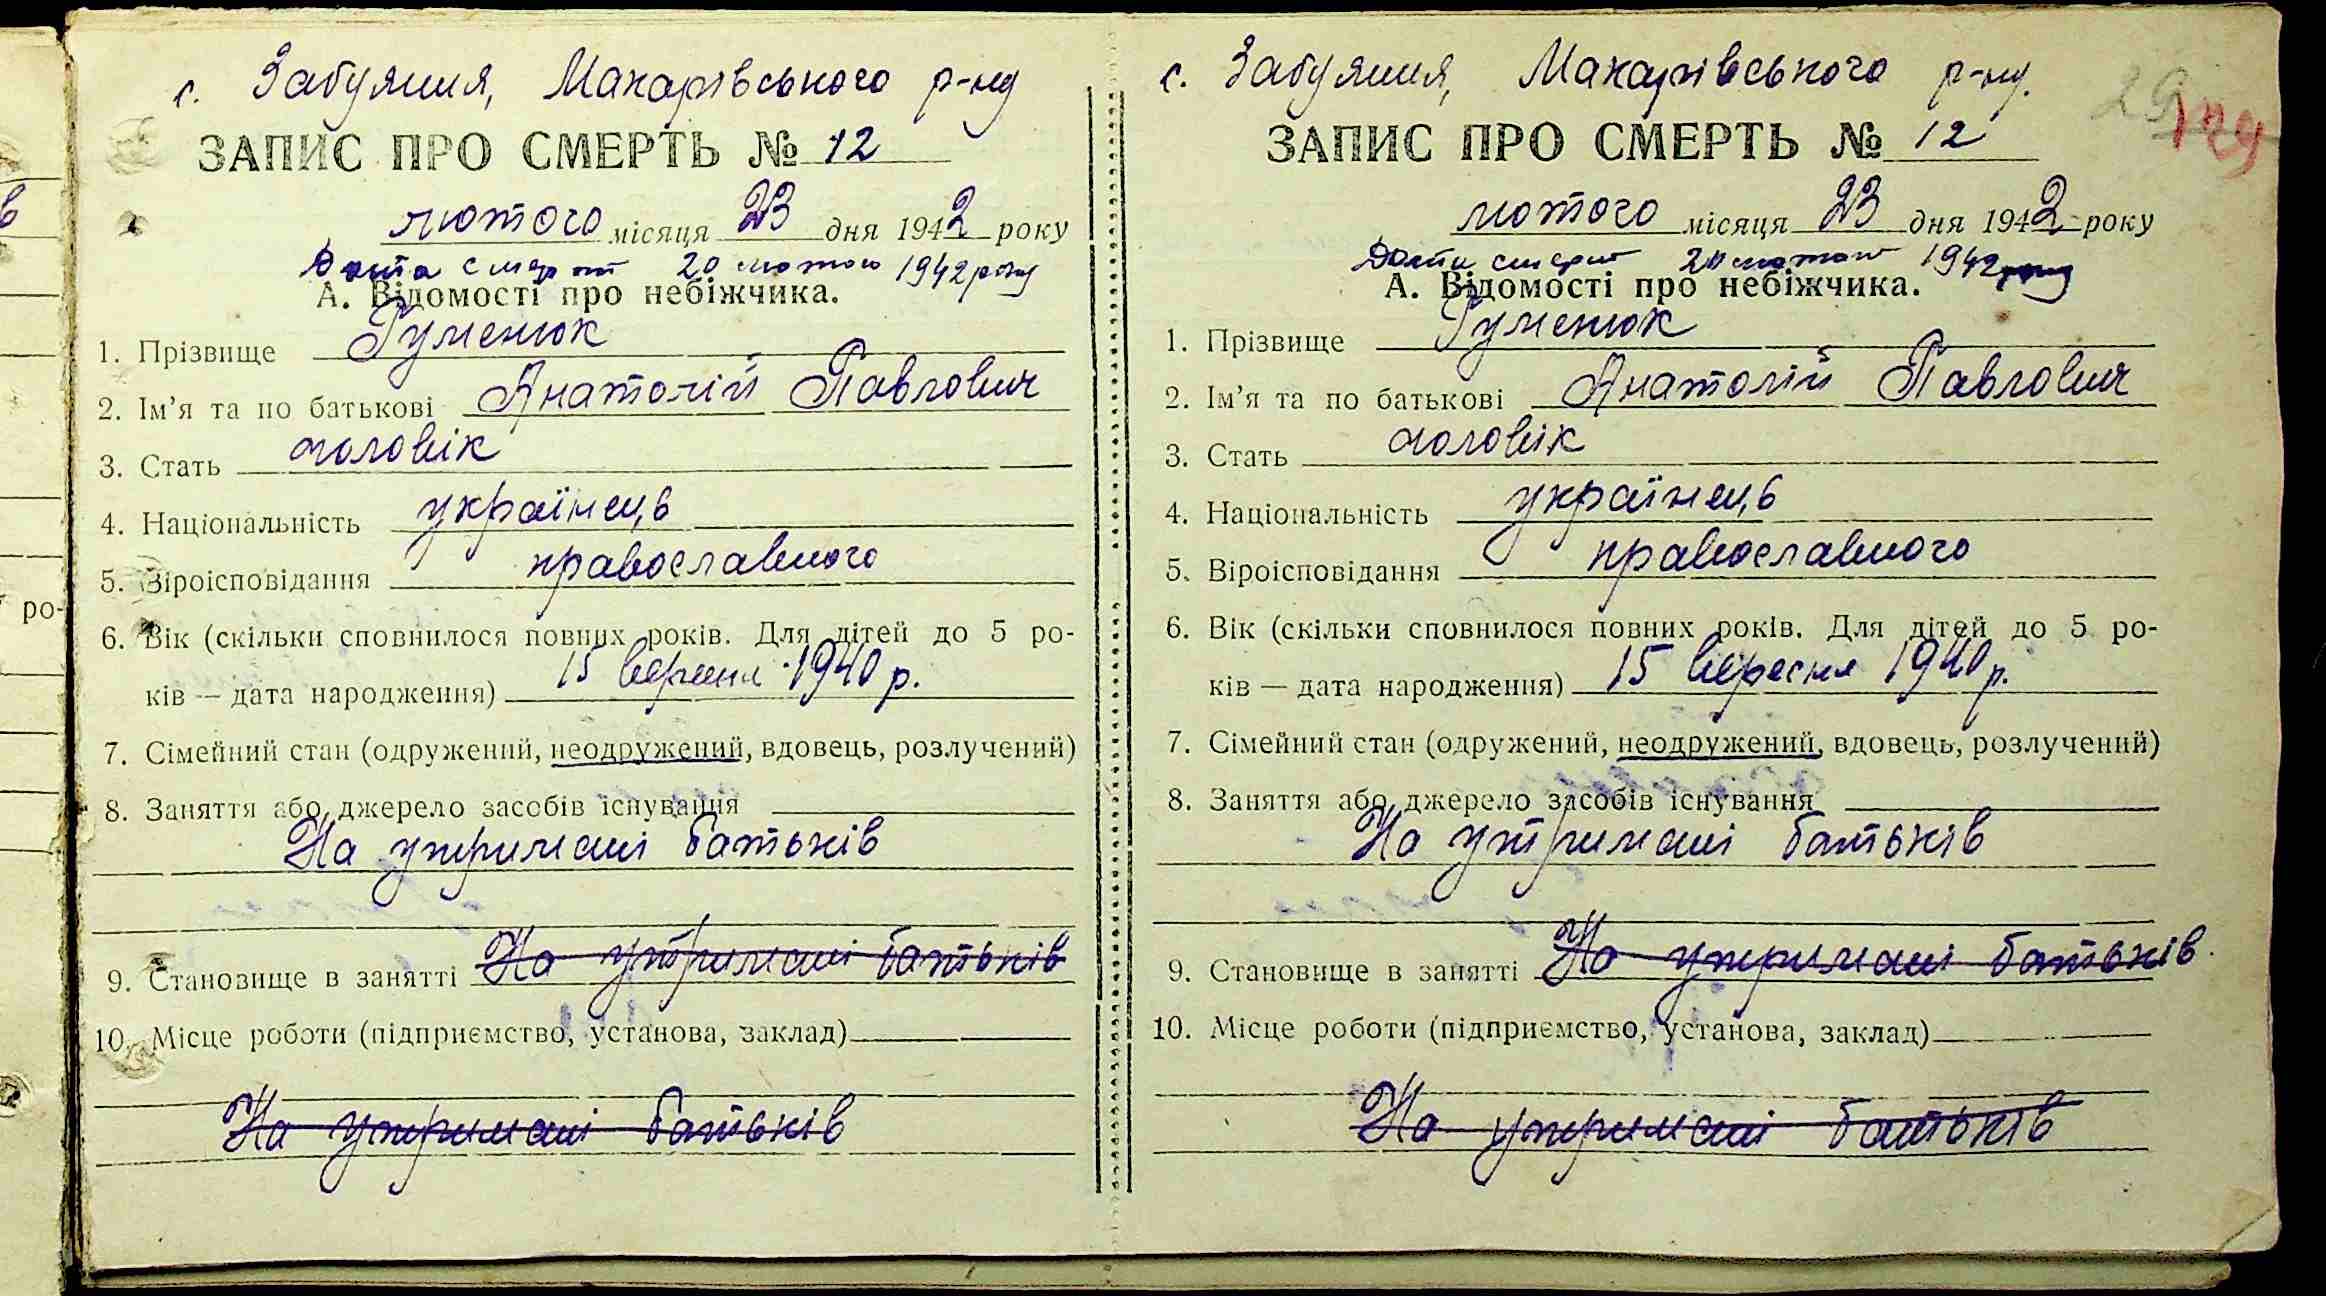 с. Забуяння, Макарівського р-ну
ЗАПИС ПРО СМЕРТЬ № 12
лютого місяця 23 дня 1942 року
Дата смерті 20 лютого 1942 року
А. Відомості про небіжчика.
1. Прізвище Гуменюк
2. Ім'я та по батькові Анатолій Павлович
3. Стать чоловік
4. Національність українець
5. Віроісповідання православного
6. Вік (скільки сповнилося повних років. Для дітей до 5 ро-
ків — дата народження) 15 вересня 1940 р.
7. Сімейний стан (одружений, неодружений, вдовець, розлучений)
8. Заняття або джерело засобів існування
На утримані батьків
9. Становище в занятті На утримані батьків
10. Місце роботи (підприємство, установа, заклад)
На утримані батьків
с. Забуяння, Макарівського р-ну.
ЗАПИС ПРО СМЕРТЬ № 12
лютого місяця 23 дня 1942 року
Дата смерті 20 лютого 1942 року
А. Відомості про небіжчика.
1. Прізвище Гуменюк
2. Ім'я та по батькові Анатолій Павлович
3. Стать чоловік
4. Національність українець
5. Віроісповідання православного
6. Вік (скільки сповнилося повних років. Для дітей до 5 ро-
ків — дата народження) 15 вересня 1940 р.
7. Сімейний стан (одружений, неодружений, вдовець, розлучений)
8. Заняття або джерело засобів існування
На утримані батьків
9. Становище в занятті На утримані батьків.
10. Місце роботи (підприємство, установа, заклад)
На утримані батьків
ро-